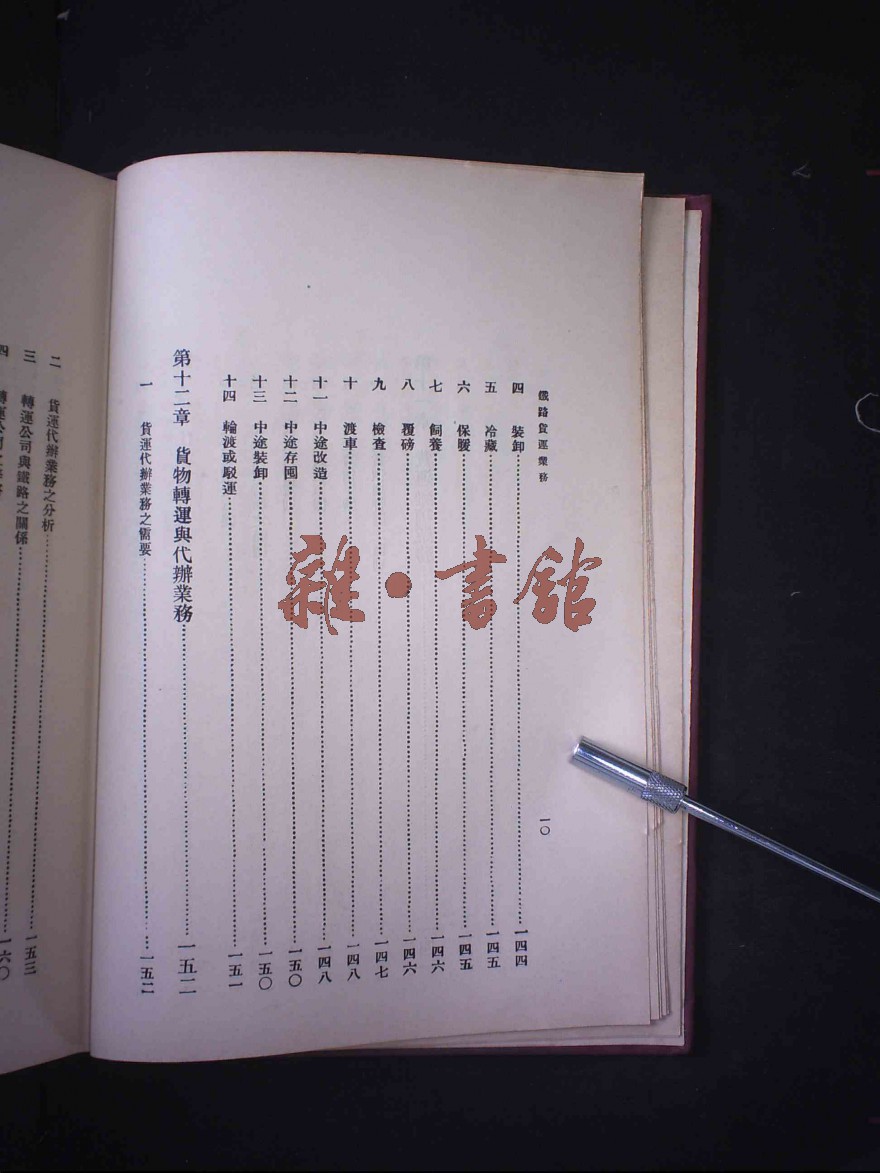 鐵路貨運業務
一〇
四 裝卸 一四四
五 冷藏 一四五
六 保暖 一四五
七 飼養 一四六
八 覆磅 一四六
九 檢查 一四七
十 渡車 一四八
十一 中途改造 一四八
十二 中途存囤 一五〇
十三 中途裝卸 一五〇
十四 輪渡或駁運 一五一
第十二章 貨物轉運與代辦業務 一五二
一 貨運代辦業務之需要 一五二
二 貨運代辦業務之分析
三 轉運公司與鐵路之關係 一五三
四 轉運公司 一六〇
雜·書館